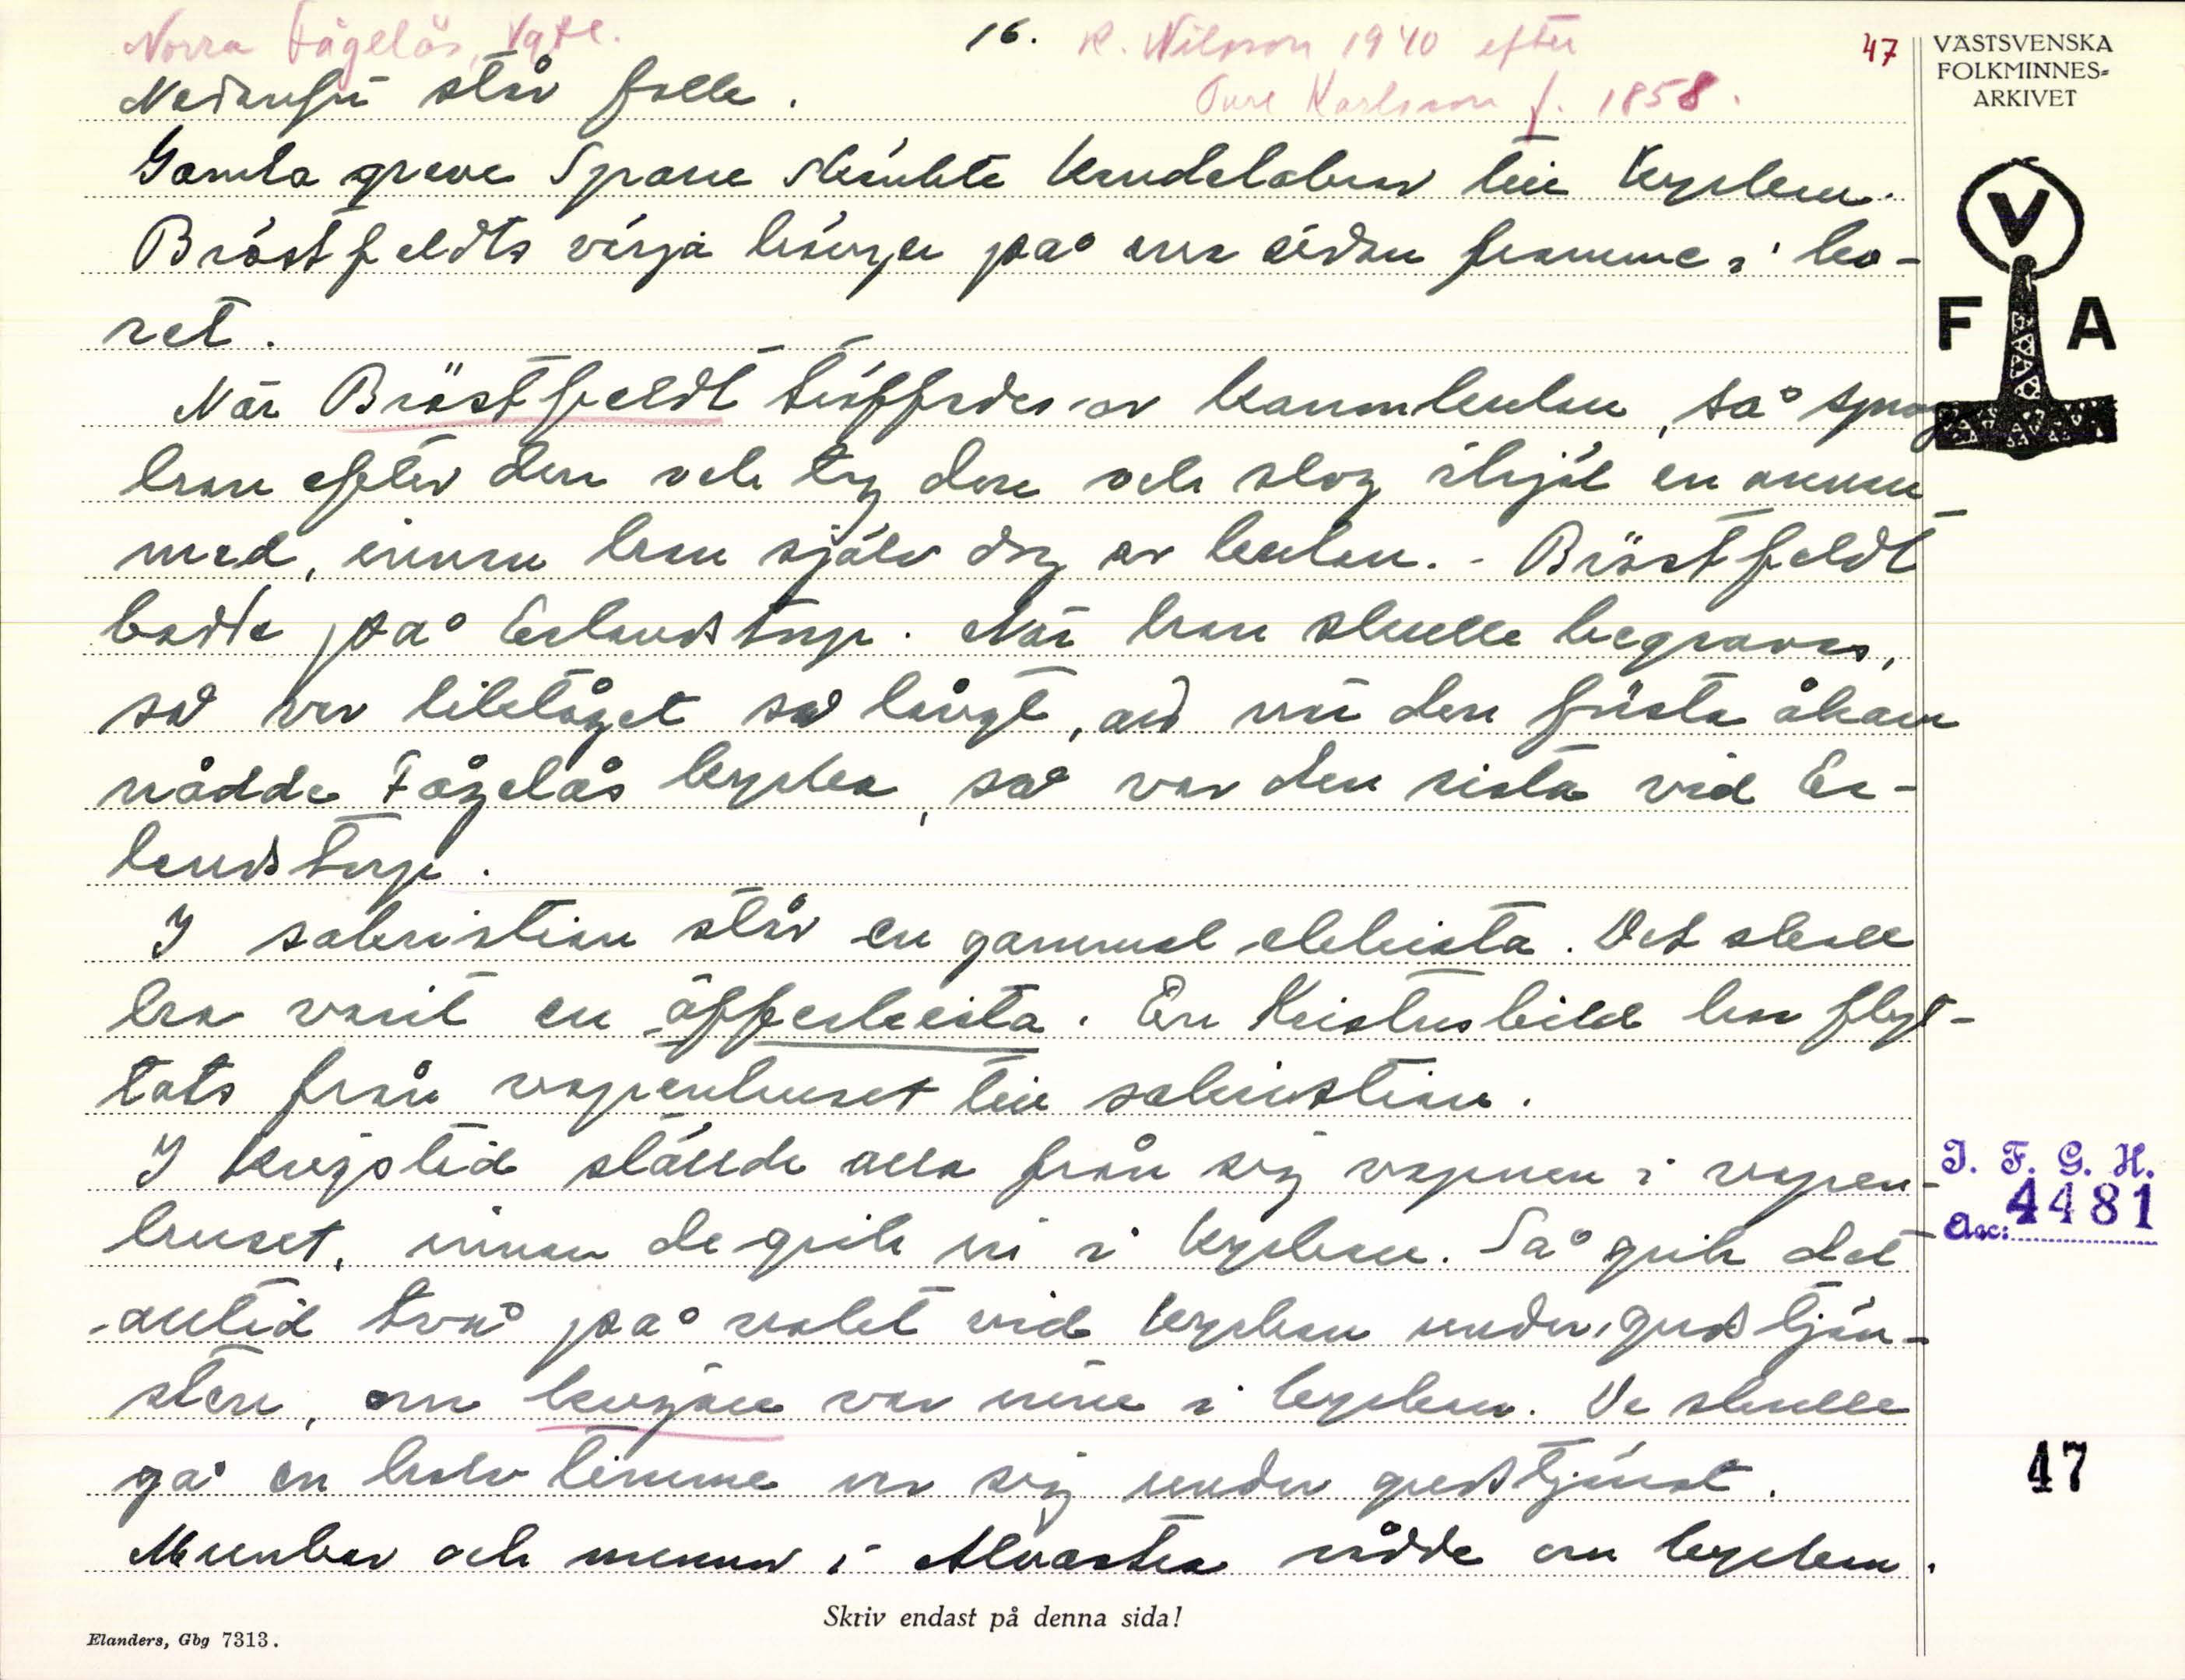 Norra Fågelås, Vgtl. 16. R. Nilsson 1940 efter 47
Ture Karlsson f. 1858.
VÄSTSVENSKA
FOLKMINNES-
ARKIVET
V
F A
Nedanför står folk.
Gamla greve Sparre skänkte kandelabrar till kyrkan.
Bröstfeldts värja hänger på ena sidan framme i ko-
ret.
När Bröstfeldt träffades av kanonkulan, så sprang
han efter den och tog den och slog ihjäl en annan
med, innan han själv dog av kulan. - Bröstfeldt
bodde på Erlandstorp. När han skulle begravas,
så var likståget så långt, att när den första åkaren
nådde Fågelås kyrka, så var den sista vid Er-
landstorp.
I sakristian står en gammal ekkista. Det skall
ha varit en offerkista. En Kristusbild har flyt-
tats från vapenhuset till sakristian.
I krigstid ställde alla från sig vapnen i vapen-
huset, innan de gick in i kyrkan. Så gick det
alltid två på vakt vid kyrkan under gudstjän-
sten, om krigare var inne i kyrkan. De skulle
gå en halv timme var sig under gudstjänst.
Munkar och nunnor i Alvastra rådde om kyrkan.
I. F. G. H.
Acc: 4481
47
Skriv endast på denna sida!
Elanders, Gbg 7313.